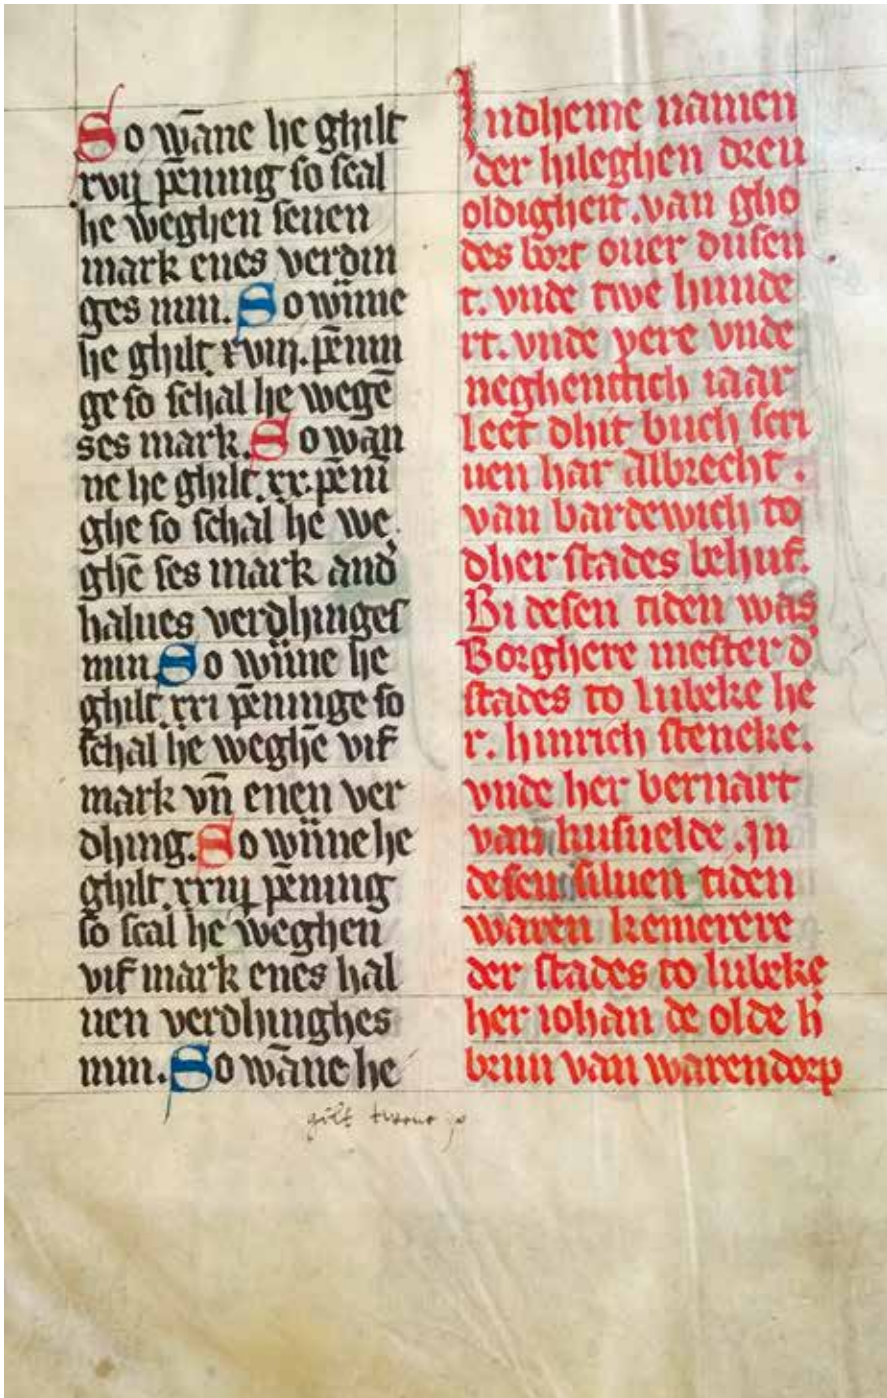 So wāne he ghilt
xvij pēning so scal
he weghen seuen
mark enes verdin
ges min. So wīne
he ghilt xviij. pēnin
ge so schal he wegē
ses mark. So wan
ne he ghilt. xx. pēni
ghe so schal he we
ghē ses mark and
halues verdhinges
min. So wīne he
ghilt. xxi pēninge so
schal he weghē vif
mark vn̄ enen ver
dhing. So wīne he
ghilt. xxiij pēning
so scal he weghen
vif mark enes hal
uen verdhinghes
min. So wāne he
Indheme namen
der hileghen dreu
oldigheit. van gho
des bort ouer dusen
t. vnde twe hunde
rt. vnde vere vnde
neghentich iaar
leet dhit buch scri
uen har albrecht.
van bardewich to
dher stades behuf.
Bi desen tiden was
Borghere mester d'
stades to lubeke he
r. hinrich steneke.
vnde her bernart
van kusuelde. in
desen siluen tiden
waren kemerere
der stades to lubeke
her iohan de olde h'
brun van warendorp
gilt